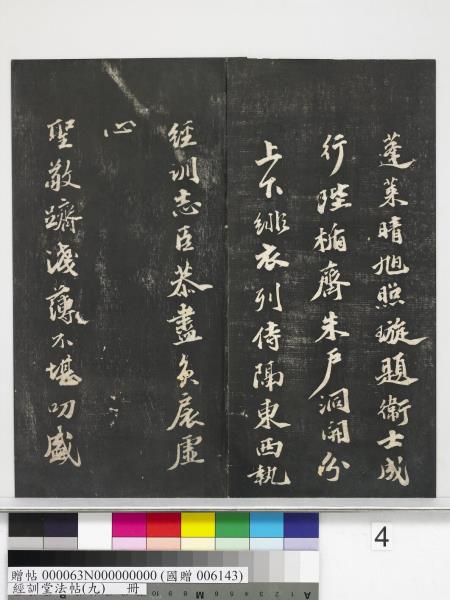 蓬萊晴旭照璇題衛士成
行陛楯齊朱戶洞開分
上下緋衣列侍隔東西執
經訓志臣恭盡負扆虛
心
聖敬躋淺薄不堪叨盛
4
贈帖 000063N000000000 (國贈 006143)
經訓堂法帖(九) 冊